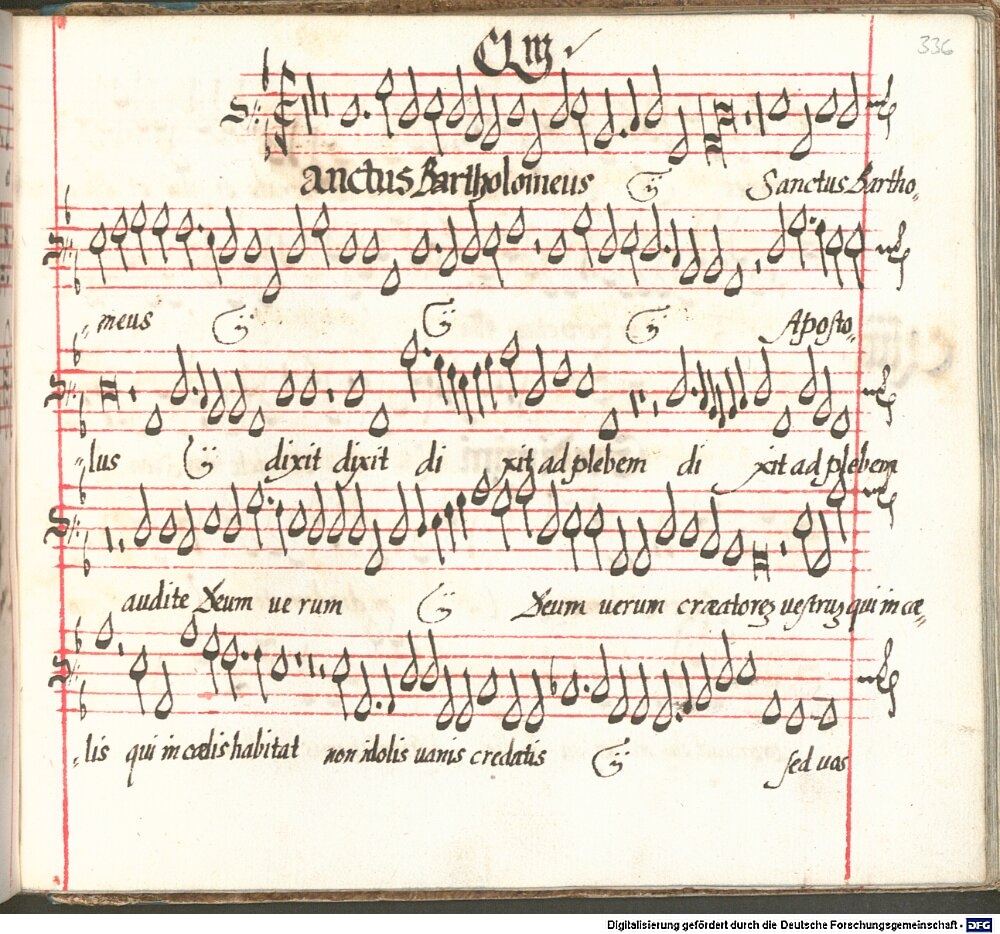 336
anctus Bartholomeus ij Sanctus Bartho„
„meus ij ij ij Aposto„
„lus ij dixit dixit di xit ad plebem di xit ad plebem
audite Deum uerum ij Deum uerum creatorez uestruz qui in cæ„
„lis qui in cœlis habitat non idolis uanis credatis ij sed uos
Digitalisierung gefördert durch die Deutsche Forschungsgemeinschaft - DFG